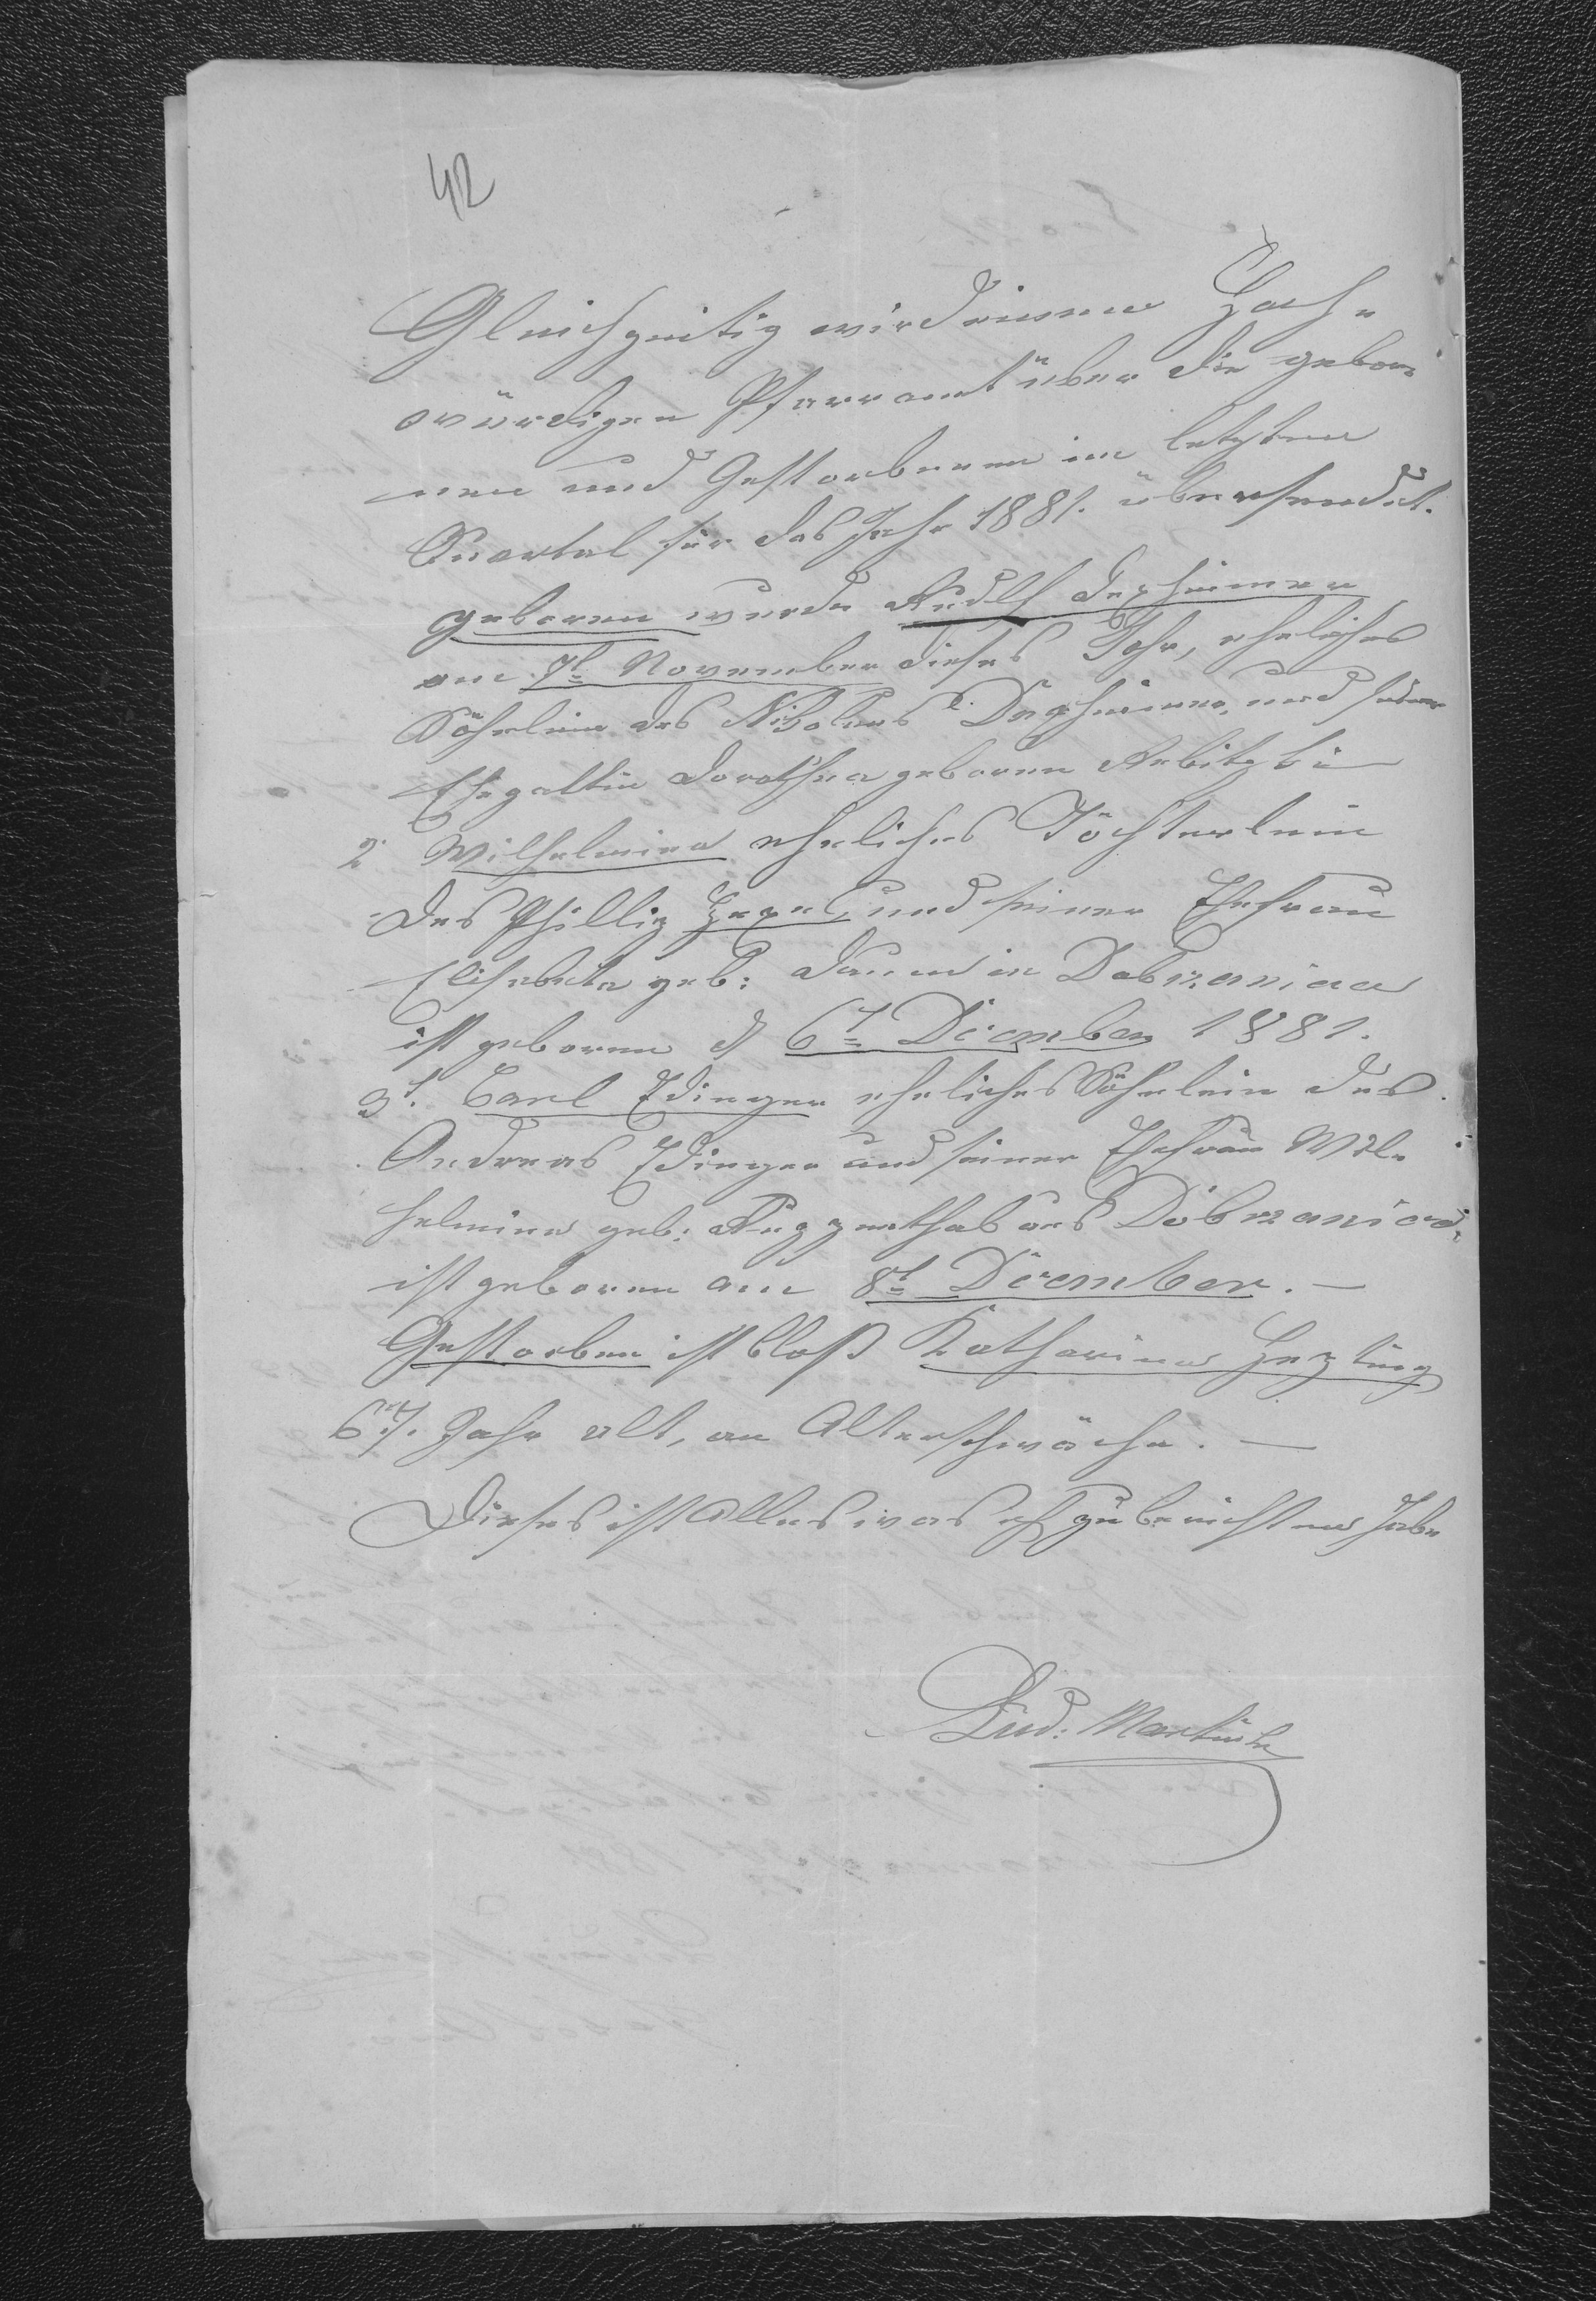 42
Gleichzeitig wird einem Hoch-
würdigen Pfarramt über die gebore-
nen und Gestorbenen im letzten
Quartal für das Jahr 1881. übersendet.
geboren wurde Rudlf Dexheimer
am 7t November dieses Jahr, eheliches
Söhnlein des Nikolaus Dexheimer, und seiner
Ehegattin Dorothea geboren
2 Wilhelmina eheliches Töchterlein
des Phillip und seiner Ehefrau
Elisabeta geb: in Dobrzanica
ist geboren d 6t Dicember 1881.
3t. Carl Edinger eheliches Söhnlein des
Andreas Edinger und seiner Ehefrau Wil-
helmina geb: aus Dobrzanica,
ist geboren am 8t Dicember. —
Gestorben ist bloß Katharina
67. Jahr alt, an Alterschwäche. —
Dieses ist Alles was ich zu berichten habe
Lud: Martin